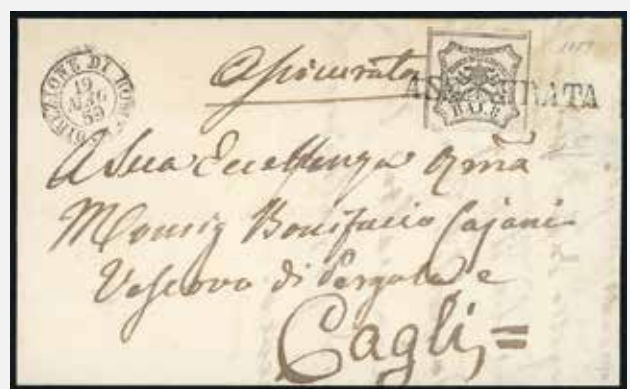 DIREZIONE DI ROMA
19
AUG
59
Assicurata
ASSICURATA
BAJ. 8
A Sua Eccellenza Rma
Monsig Bonifacio Cajani
Vescovo di Pergola e
Cagli =